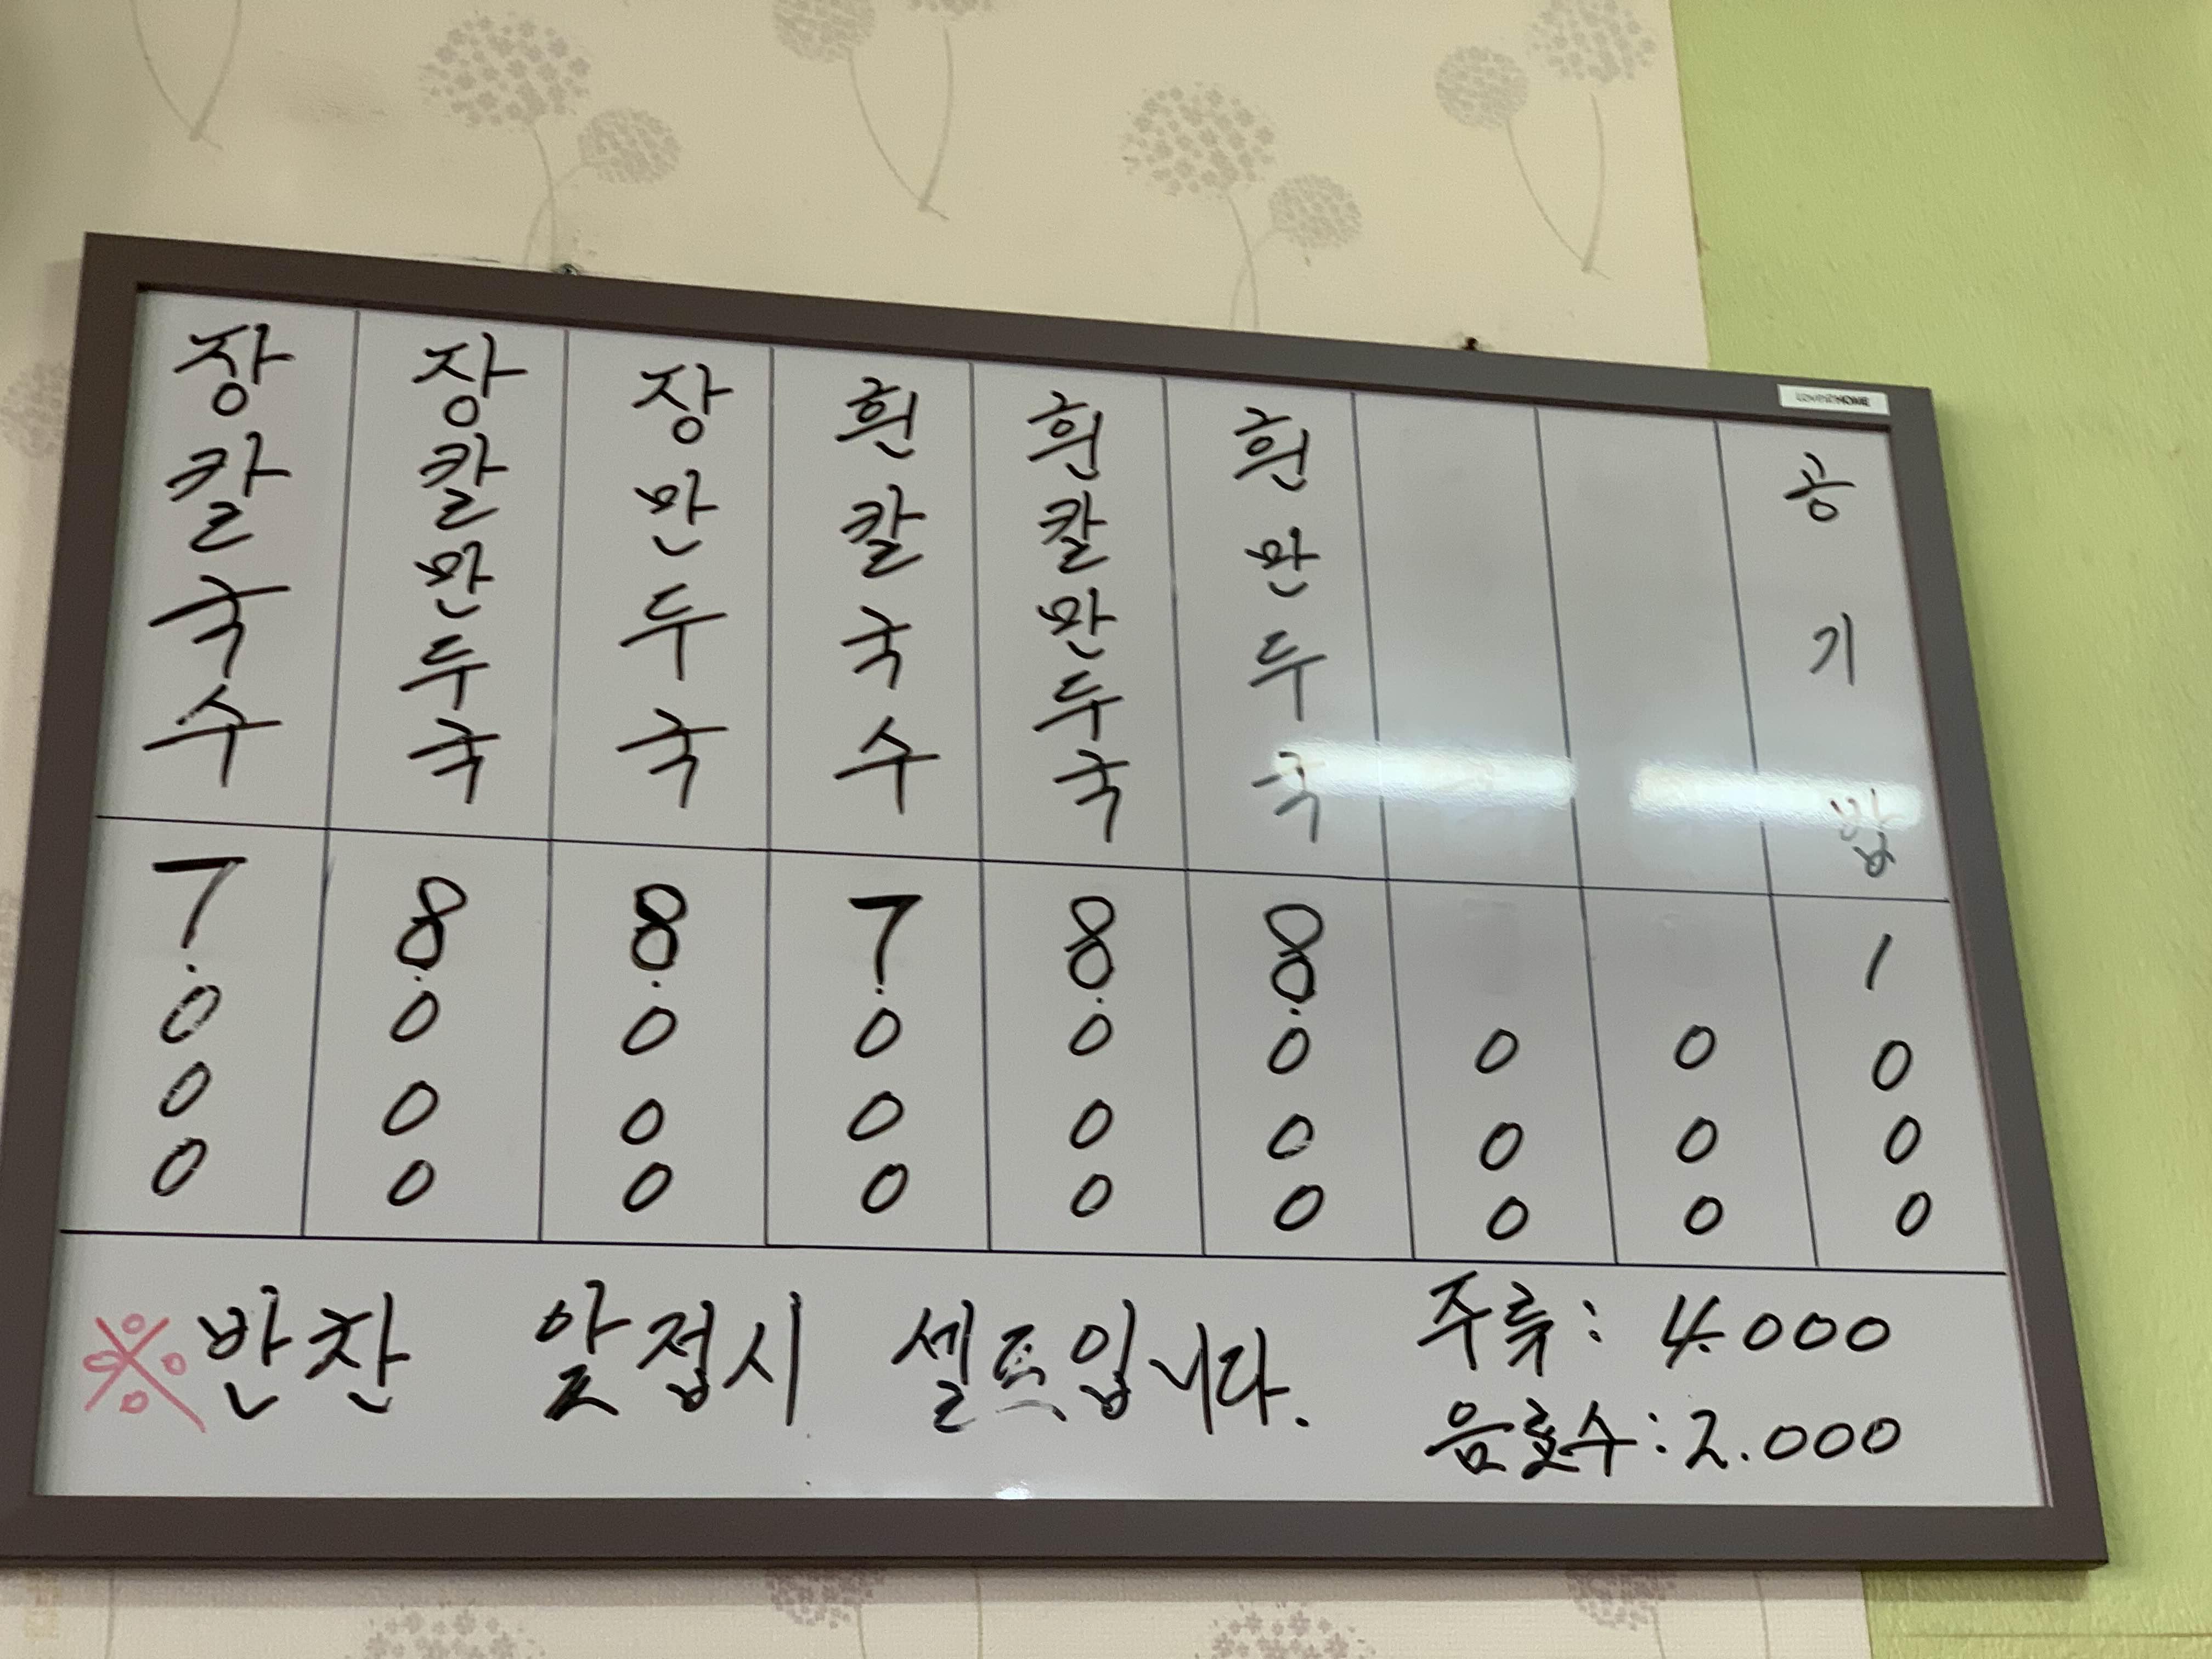 장칼국수 7.000
장칼만두국 8.000
장만두국 8.000
흰칼국수 7.000
흰칼만두국 8.000
흰만두국 8.000
000
000
공기밥 1000
※반찬 앞접시 셀프입니다.
주류: 4.000
음료수:2.000